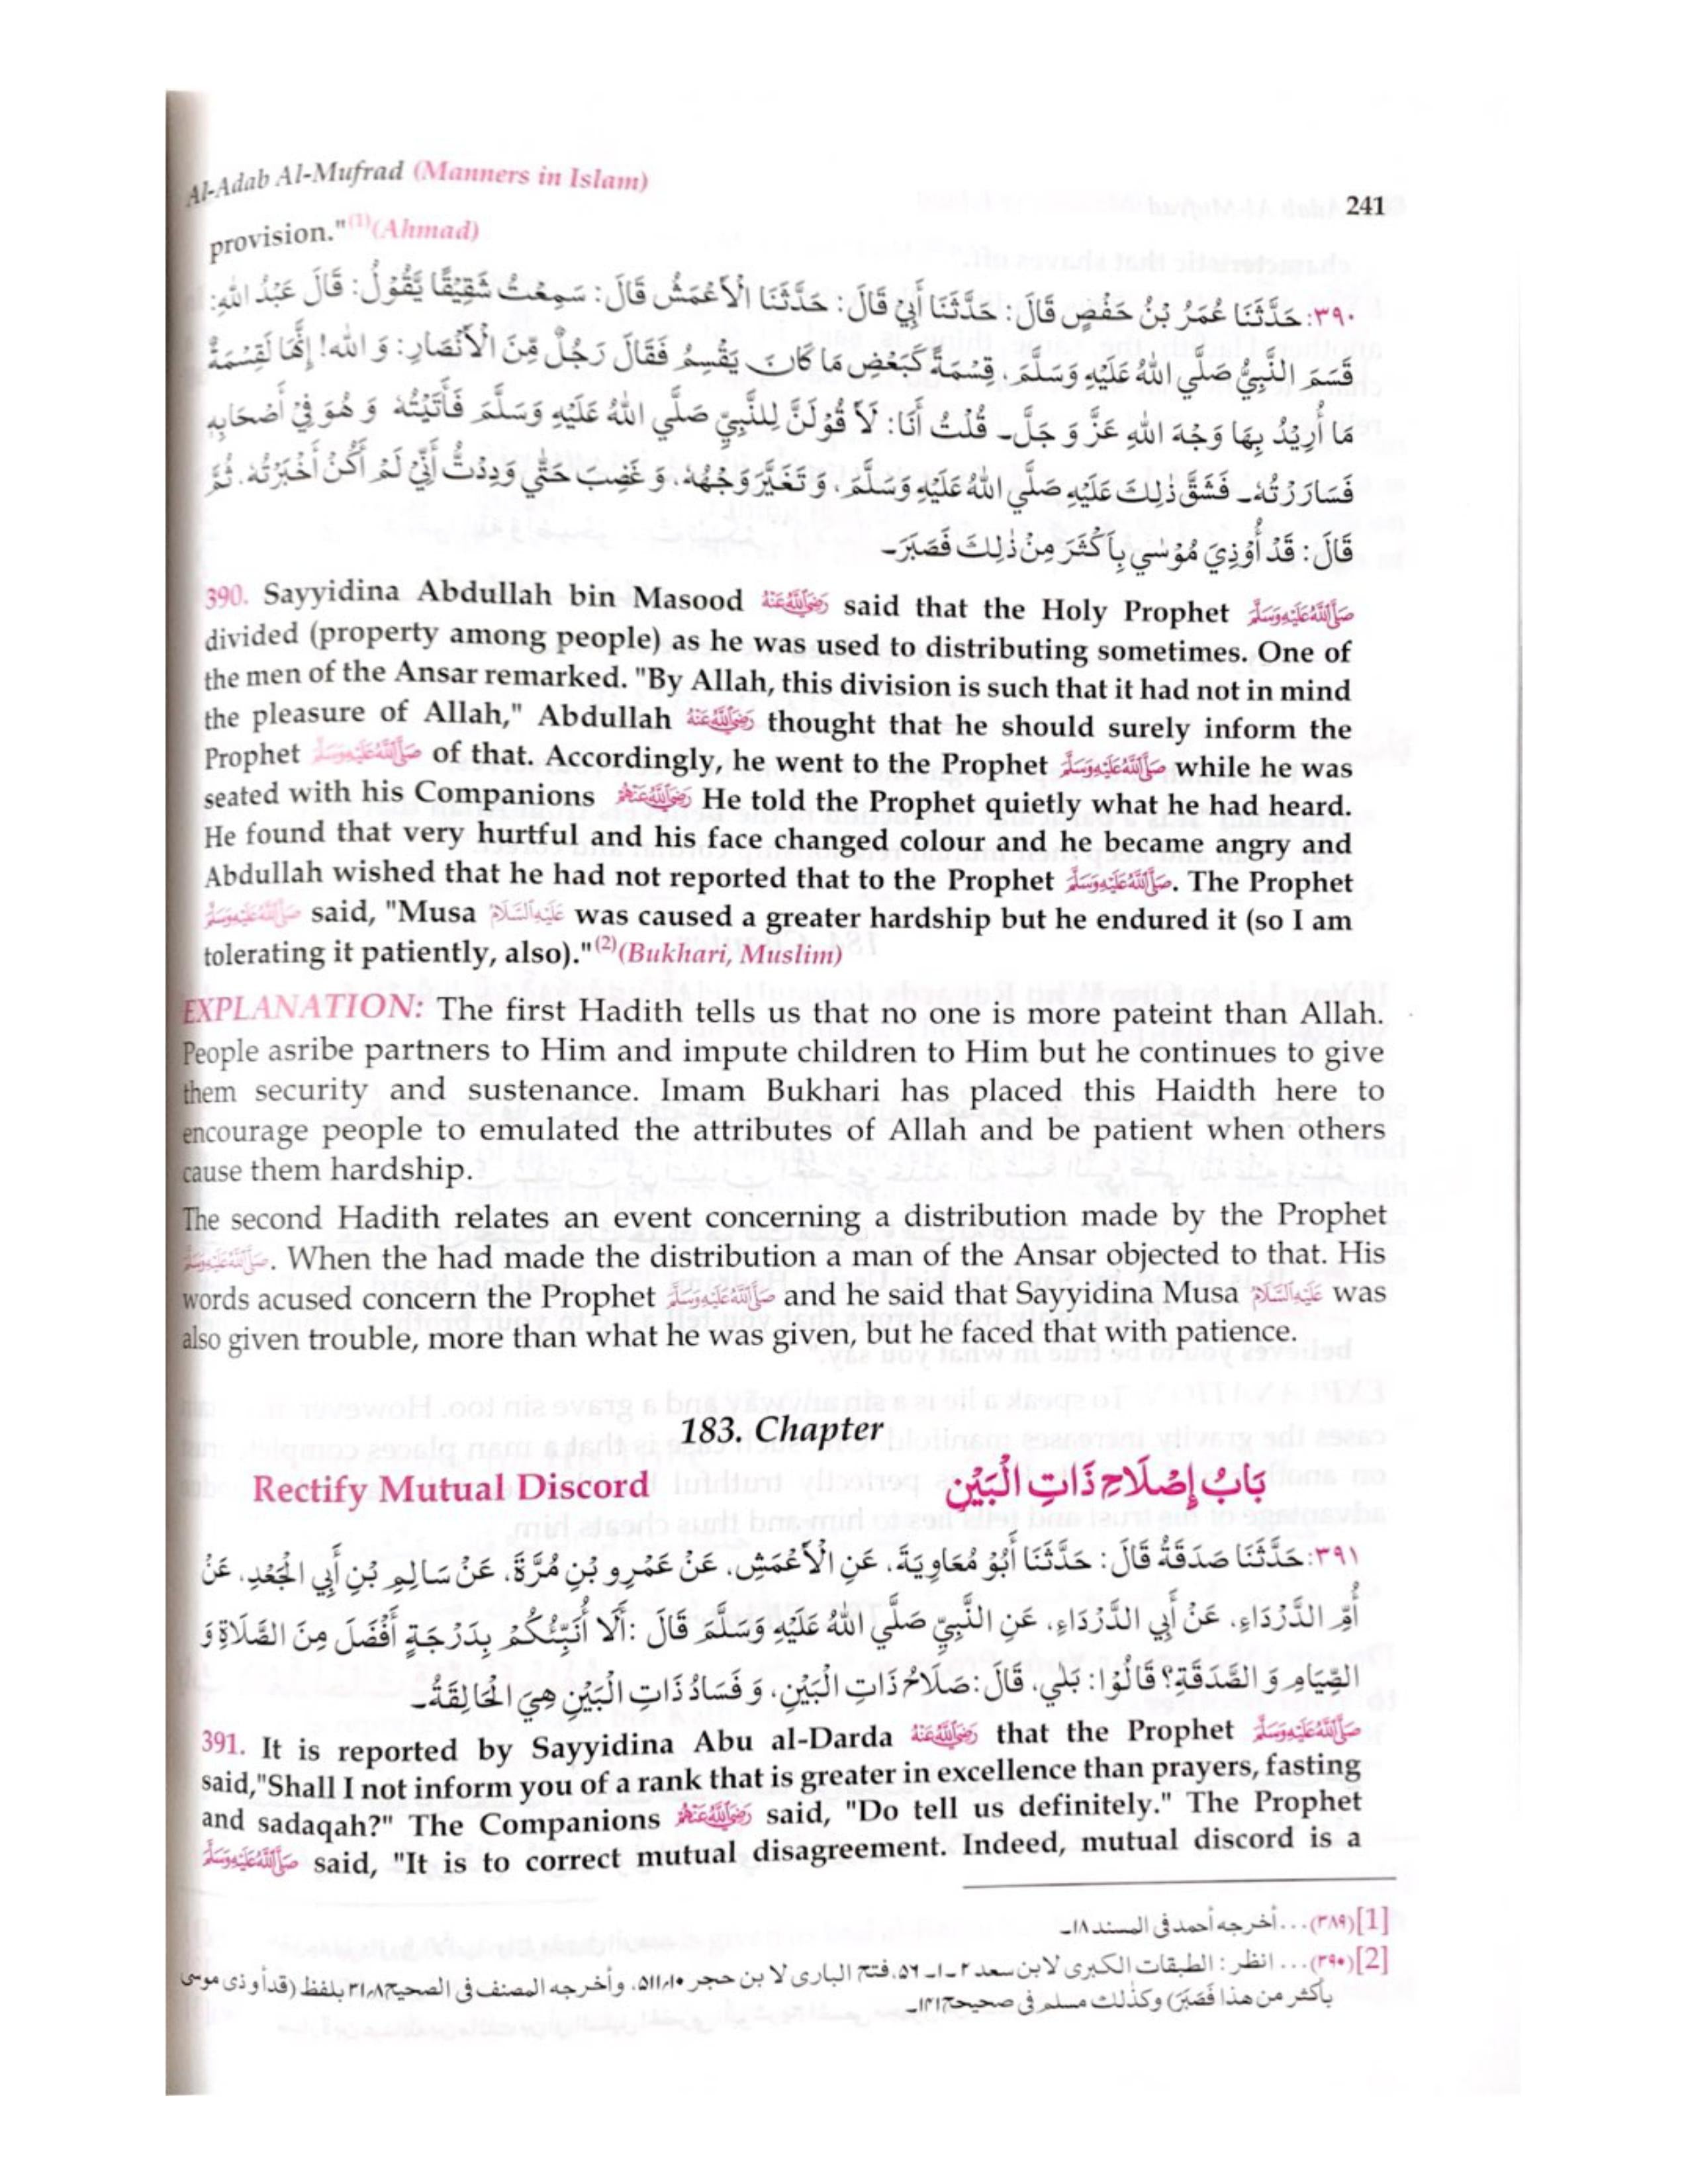 Al-Adab Al-Mufrad (Manners in Islam)
241
provision."(1)(Ahmad)
٣٩٠: حَدَّثَنَا عُمَرُ بْنُ حَفْصٍ قَالَ: حَدَّثَنَا أَبِيْ قَالَ: حَدَّثَنَا الْأَعْمَشُ قَالَ: سَمِعْتُ شَقِيْقًا يَّقُوْلُ: قَالَ عَبْدُ اللهِ:
قَسَمَ النَّبِيُّ صَلَّي اللهُ عَلَيْهِ وَسَلَّمَ، قِسْمَةً كَبَعْضِ مَا كَانَ يَقْسِمُ فَقَالَ رَجُلٌ مِّنَ الْأَنْصَارِ: وَ اللهِ! إِنَّهَا لَقِسْمَةٌ
مَا أُرِيْدُ بِهَا وَجْهَ اللهِ عَزَّ وَ جَلَّ۔ قُلْتُ أَنَا: لَأَ قُوْلَنَّ لِلنَّبِيِّ صَلَّي اللهُ عَلَيْهِ وَسَلَّمَ فَأَتَيْتُهُ وَ هُوَ فِيْ أَصْحَابِهِ
فَسَارَرْتُهُ۔ فَشَقَّ ذٰلِكَ عَلَيْهِ صَلَّي اللهُ عَلَيْهِ وَسَلَّمَ، وَ تَغَيَّرَ وَجْهُهُ، وَ غَضِبَ حَتّٰي وَدِدْتُّ أَنِّيْ لَمْ أَكُنْ أَخْبَرْتُهُ، ثُمَّ
قَالَ: قَدْ أُوْذِيَ مُوْسٰي بِأَكْثَرَ مِنْ ذٰلِكَ فَصَبَرَ۔
390. Sayyidina Abdullah bin Masood رَضِيَ اللهُ عَنْهُ said that the Holy Prophet صَلَّى اللهُ عَلَيْهِ وَسَلَّمَ
divided (property among people) as he was used to distributing sometimes. One of
the men of the Ansar remarked. "By Allah, this division is such that it had not in mind
the pleasure of Allah," Abdullah رَضِيَ اللهُ عَنْهُ thought that he should surely inform the
Prophet صَلَّى اللهُ عَلَيْهِ وَسَلَّمَ of that. Accordingly, he went to the Prophet صَلَّى اللهُ عَلَيْهِ وَسَلَّمَ while he was
seated with his Companions رَضِيَ اللهُ عَنْهُمْ He told the Prophet quietly what he had heard.
He found that very hurtful and his face changed colour and he became angry and
Abdullah wished that he had not reported that to the Prophet صَلَّى اللهُ عَلَيْهِ وَسَلَّمَ. The Prophet
صَلَّى اللهُ عَلَيْهِ وَسَلَّمَ said, "Musa عَلَيْهِ السَّلَامُ was caused a greater hardship but he endured it (so I am
tolerating it patiently, also)."(2)(Bukhari, Muslim)
EXPLANATION: The first Hadith tells us that no one is more pateint than Allah.
People asribe partners to Him and impute children to Him but he continues to give
them security and sustenance. Imam Bukhari has placed this Haidth here to
encourage people to emulated the attributes of Allah and be patient when others
cause them hardship.
The second Hadith relates an event concerning a distribution made by the Prophet
صَلَّى اللهُ عَلَيْهِ وَسَلَّمَ. When the had made the distribution a man of the Ansar objected to that. His
words acused concern the Prophet صَلَّى اللهُ عَلَيْهِ وَسَلَّمَ and he said that Sayyidina Musa عَلَيْهِ السَّلَامُ was
also given trouble, more than what he was given, but he faced that with patience.
183. Chapter
Rectify Mutual Discord
بَابُ إِصْلَاحِ ذَاتِ الْبَيْنِ
٣٩١: حَدَّثَنَا صَدَقَةُ قَالَ: حَدَّثَنَا أَبُوْ مُعَاوِيَةَ، عَنِ الْأَعْمَشِ، عَنْ عَمْرِو بْنِ مُرَّةَ، عَنْ سَالِمِ بْنِ أَبِي الْجَعْدِ، عَنْ
أُمِّ الدَّرْدَاءِ، عَنْ أَبِي الدَّرْدَاءِ، عَنِ النَّبِيِّ صَلَّي اللهُ عَلَيْهِ وَسَلَّمَ قَالَ: أَلَا أُنَبِّئُكُمْ بِدَرْجَةٍ أَفْضَلَ مِنَ الصَّلَاةِ وَ
الصِّيَامِ وَ الصَّدَقَةِ؟ قَالُوْا: بَلٰي، قَالَ: صَلَاحُ ذَاتِ الْبَيْنِ، وَ فَسَادُ ذَاتِ الْبَيْنِ هِيَ الْحَالِقَةُ۔
391. It is reported by Sayyidina Abu al-Darda رَضِيَ اللهُ عَنْهُ that the Prophet صَلَّى اللهُ عَلَيْهِ وَسَلَّمَ
said,"Shall I not inform you of a rank that is greater in excellence than prayers, fasting
and sadaqah?" The Companions رَضِيَ اللهُ عَنْهُمْ said, "Do tell us definitely." The Prophet
صَلَّى اللهُ عَلَيْهِ وَسَلَّمَ said, "It is to correct mutual disagreement. Indeed, mutual discord is a
[1](٣٨٩)... أخرجه أحمد فى المسند ١٨۔
[2](٣٩٠)... انظر: الطبقات الكبرى لابن سعد ٢-١-٥٦، فتح البارى لا بن حجر ٥١١/١٠، وأخرجه المصنف فى الصحيح ٣١/٨ بلفظ (قد أوذى موسى
بأكثر من هذا فَصَبَرَ) وكذٰلك مسلم فى صحيحح١٤١۔